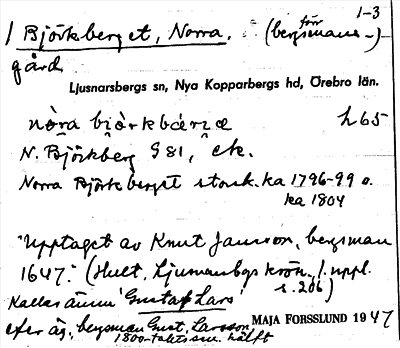 1-3
1 Björkberget, Norra. (förr bergsmans-)
gård
Ljusnarsbergs sn, Nya Kopparbergs hd, Örebro län.
nòra bjòrkbærjæ h65
N. Björkberg G81, ek.
Norra Björkberget storsk.ka 1796-99 o.
ka 1804
"Upptaget av Knut Jansson, bergsman
1647." (Hult, Ljusnarsbgs krön. 1. uppl.
s. 206)
Kallas ännu 'Gustaf Lars'
efter äg. bergsman Gust. Larsson,
1800-talets sen. hälft
MAJA FORSSLUND 1947